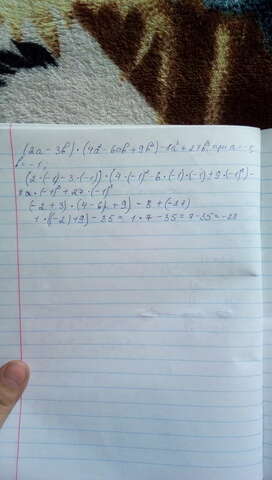 (2a - 3b) · (4a² - 6ab + 9b²) - 8a³ + 27b³ при a = -1,
b = -1;
(2 · (-1) - 3 · (-1)) · (4 · (-1)² - 6 · (-1) · (-1) + 9 · (-1)²) -
8 · (-1)³ + 27 · (-1)³
(-2 + 3) · (4 - 6 + 9) - 8 + (-27)
1 · (-2) + 9) - 35 = 1 · 7 - 35 = 7 - 35 = -28